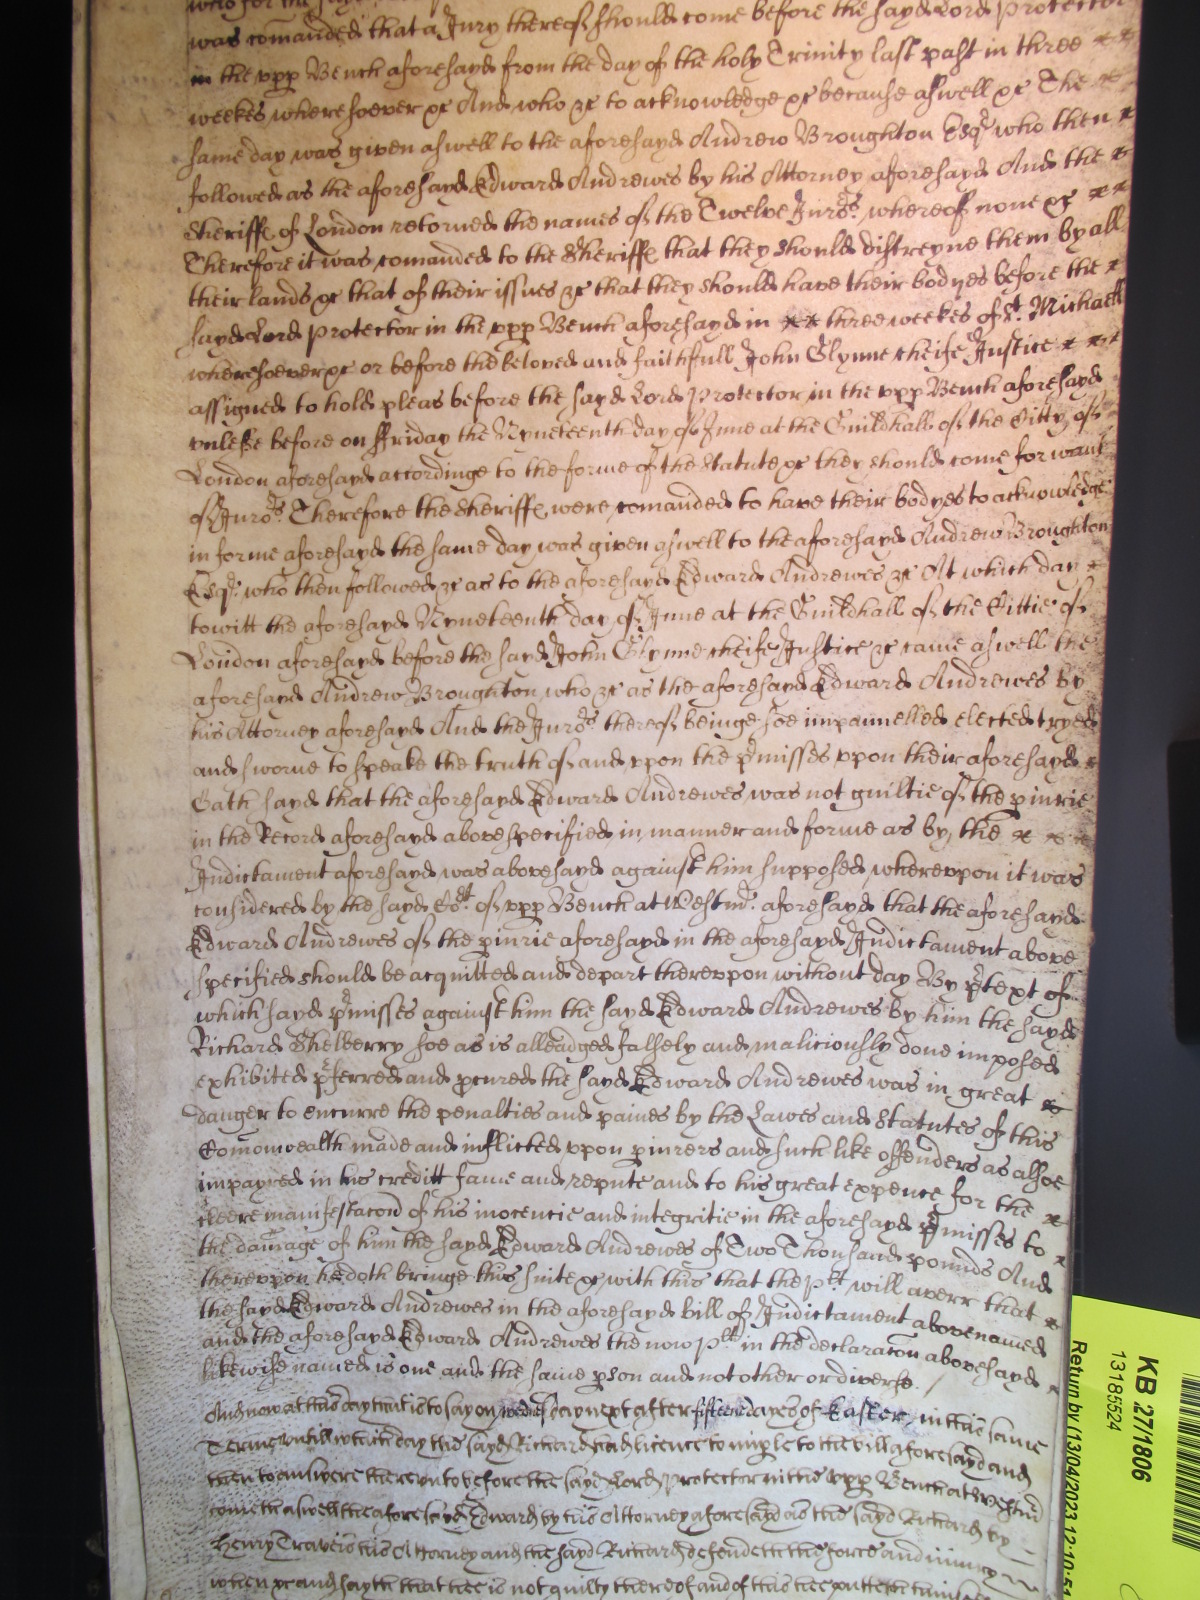 was comanded that a Jury thereof should come before the sayd Lord Protector
in the vpp Bench aforesayd from the day of the holy Trinity last past in three
weekes wheresoever &c And who &c to acknowledge &c because aswell &c The
same day was given aswell to the aforesayd Andrew Broughton Esqr who then
followed as the aforesayd Edward Andrewes by his Attorney aforesayd And the
Sheriffe of London retorned the names of the Twelve Juros whereof none &c
Therefore it was comanded to the Sheriffe that they should distreyne them by all
their lands &c that of their issues &c that they should have their bodyes before the
sayd Lord Protector in the vpp Bench aforesayd in three weekes of St. Michaell
wheresoever &c or before the beloved and faithfull John Glynne cheife Justice
assigned to hold pleas before the sayd Lord Protector in the vpp Bench aforesayd
vnlesse before on Friday the Nyneteenth day of June at the Guildhall of the Citty of
London aforesayd accordinge to the forme of the Statute &c they should come for want
of Juros Therefore the Sheriffe were comanded to have their bodyes to acknowledge
in forme aforesayd the same day was given aswell to the aforesayd Andrew Broughton
Esqr. who then followed &c as to the aforesayd Edward Andrewes &c At which day
towitt the aforesayd Nyneteenth day of June at the Guildhall of the Cittie of
London aforesayd before the sayd John Glynne cheife Justice &c came aswell the
aforesayd Andrew Broughton who &c as the aforesayd Edward Andrewes by
his Attorney aforesayd And the Juros thereof beinge soe impannelled elected tryed
and sworne to speake the truth of and vpon the pmisses vpon their aforesayd
Oath sayd that the aforesayd Edward Andrewes was not guiltie of the piurie
in the Record aforesayd above specified in manner and forme as by the
Indictament aforesayd was abovesayd against him supposed wherevpon it was
considered by the sayd Cort of vpp Bench at Westmr. aforesayd that the aforesayd
Edward Andrewes of the piurie aforesayd in the aforesayd Indictament above
specified should be acquitted and depart therevpon without day By ptext of
which sayd pmisses against him the sayd Edward Andrewes by him the sayd
Richard Shelberry soe as is alleadged falsely and maliciously done imposed
exhibited pferred and pcured the sayd Edward Andrewes was in great
danger to encurre the penalties and paines by the Lawes and Statutes of this
Comonwealth made and inflicted vpon piurers and such like offenders as alsoe
impayred in his creditt fame and repute and to his great expence for the
cleere manifestacon of his inocencie and integritie in the aforesayd pmisses to
the damage of him the sayd Edward Andrewes of Two Thousand pounds And
therevpon he doth bringe this suite &c with this that the plt will averr that
the sayd Edward Andrewes in the aforesayd bill of Indictament abovenamed
and the aforesayd Edward Andrewes the now plt in the declaracon abovesayd
likewise named is one and the same pson and not other or diverse /
And now at this day that is to say on wednesday next after fifteene dayes of Easter in this same
Terme untill which day the sayd Richard had licence to imple to the bill aforesayd and
then to answere therevnto before the sayd Lord Protector in the vpp Bench at Westmr
cometh aswell the aforesayd Edward by his Attorney aforesayd as the sayd Richard by
Henry Travers his Attorney and the sayd Richard defendeth the force and iniury
when &c and sayth that hee is not guilty thereof and of this hee putteth himselfe
KB 27/1806
13185524
Return by (13/04/2023 12:10:51